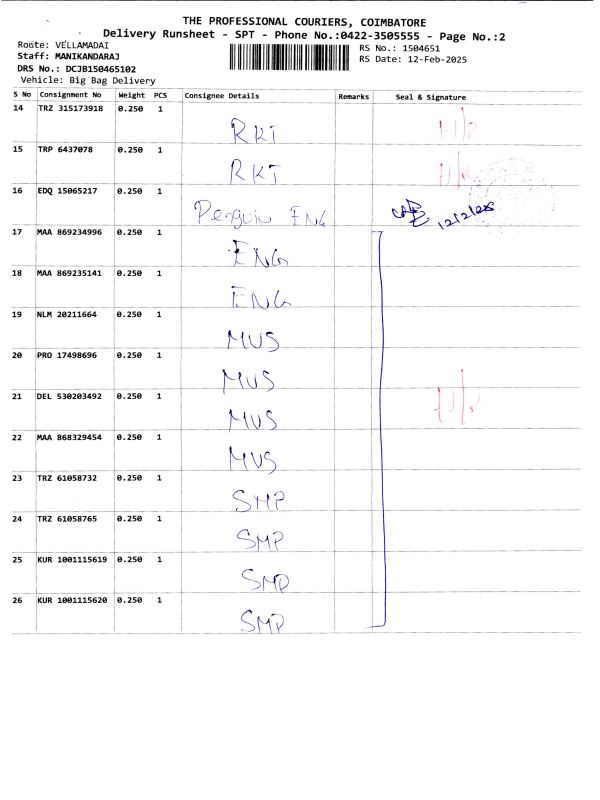 THE PROFESSIONAL COURIERS, COIMBATORE
Delivery Runsheet - SPT - Phone No.:0422-3505555 - Page No.:2
Route: VELLAMADAI
Staff: MANIKANDARAJ
DRS No.: DCJB150465102
Vehicle: Big Bag Delivery
RS No.: 1504651
RS Date: 12-Feb-2025
S No Consignment No Weight PCS Consignee Details Remarks Seal & Signature
14 TRZ 315173918 0.250 1 RKT
15 TRP 6437078 0.250 1 RKT
16 EDQ 15065217 0.250 1 Penguin ENG 12/2/25
17 MAA 869234996 0.250 1 ENG
18 MAA 869235141 0.250 1 ENG
19 NLM 20211664 0.250 1 MUS
20 PRO 17498696 0.250 1 MUS
21 DEL 530203492 0.250 1 MUS
22 MAA 868329454 0.250 1 MUS
23 TRZ 61058732 0.250 1 SMP
24 TRZ 61058765 0.250 1 SMP
25 KUR 1001115619 0.250 1 SMP
26 KUR 1001115620 0.250 1 SMP